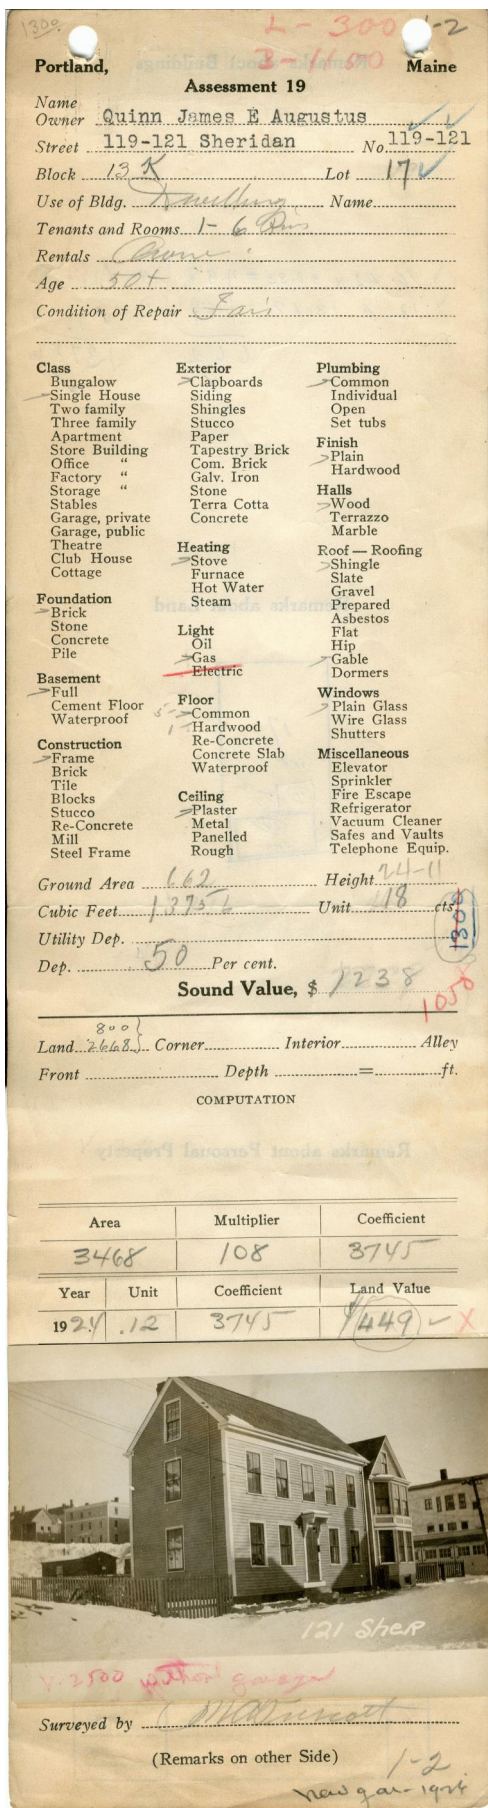 1300
L-300
1-2
B-1100
Portland, Maine
Assessment 19
Name
Owner Quinn James E Augustus
Street 119-121 Sheridan No 119-121
Block 13 K Lot 17
Use of Bldg. Dwelling Name
Tenants and Rooms 1- 6 Rms
Rentals
Age 50+
Condition of Repair Fair
Class
Bungalow
Single House
Two family
Three family
Apartment
Store Building
Office "
Factory "
Storage "
Stables
Garage, private
Garage, public
Theatre
Club House
Cottage
Foundation
Brick
Stone
Concrete
Pile
Basement
Full
Cement Floor
Waterproof
Construction
Frame
Brick
Tile
Blocks
Stucco
Re-Concrete
Mill
Steel Frame
Exterior
Clapboards
Siding
Shingles
Stucco
Paper
Tapestry Brick
Com. Brick
Galv. Iron
Stone
Terra Cotta
Concrete
Heating
Stove
Furnace
Hot Water
Steam
Light
Oil
Gas
Electric
Floor
5- Common
1- Hardwood
Re-Concrete
Concrete Slab
Waterproof
Ceiling
Plaster
Metal
Panelled
Rough
Plumbing
Common
Individual
Open
Set tubs
Finish
Plain
Hardwood
Halls
Wood
Terrazzo
Marble
Roof — Roofing
Shingle
Slate
Gravel
Prepared
Asbestos
Flat
Hip
Gable
Dormers
Windows
Plain Glass
Wire Glass
Shutters
Miscellaneous
Elevator
Sprinkler
Fire Escape
Refrigerator
Vacuum Cleaner
Safes and Vaults
Telephone Equip.
Ground Area 662 Height 24-11
Cubic Feet 13756 Unit 18 cts.
1300
Utility Dep.
Dep. 50 Per cent.
Sound Value, $ 1238
1058
800
Land 2668 Corner Interior Alley
Front Depth = ft.
COMPUTATION
Area Multiplier Coefficient
3468 108 3745
Year Unit Coefficient Land Value
1924 .12 3745 $449
121 Sher
V. 2500 without garage
Surveyed by
(Remarks on other Side)
1-2
New gar-1926